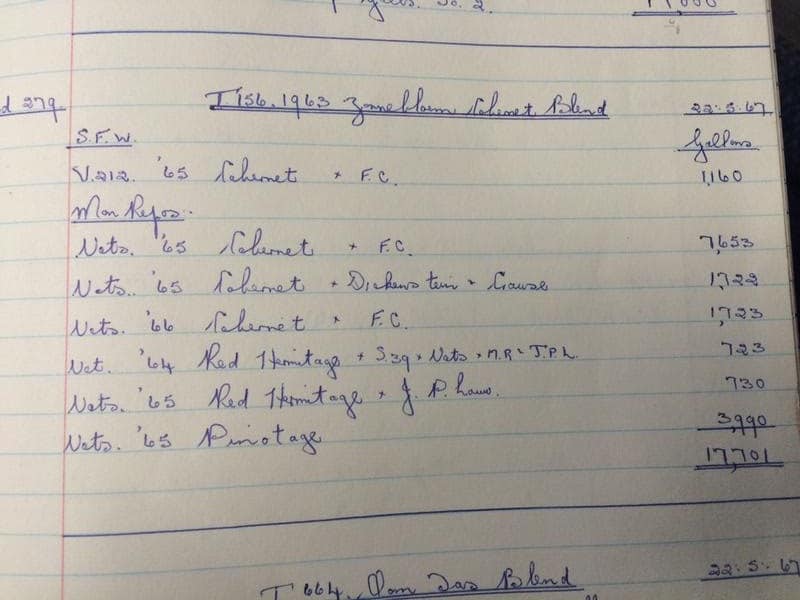 No. 2.
17,000
d 279
T 156. 1963 Zonnebloem Cabernet Blend 22.5.67
S.F.W. Gallons
V.212. '65 Cabernet × F.C. 1,160
Mon Repos.
Nets. '65 Cabernet × F.C. 7,653
Nets. '65 Cabernet × Dickens tein × Gause 1,722
Nets. '66 Cabernet × F.C. 1,723
Net. '64 Red Hermitage × S.39 × Nets × M.R × J.P.L. 723
Nets. '65 Red Hermitage × J. P. Louw. 730
Nets. '65 Pinotage 3,990
17,701
T 664. Oom Tas Blend 22.5.67